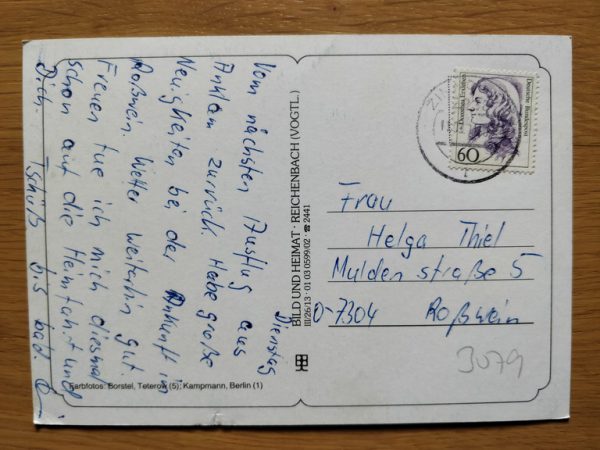 Dienstag
Vom nächsten Ausflug aus
Anklam zurück. Habe große
Neuigkeiten bei der Ankunft in
Roßwein. Wetter weiterhin gut.
Freuen tue ich mich diesmal
schon auf die Heimfahrt und
Dich.
Tschüß bis bald
Farbfotos: Borstel, Teterow (5); Kampmann, Berlin (1)
BILD UND HEIMAT · REICHENBACH (VOGTL.)
III/26/13 · 01 03 0599/02 · ☎ 2441
Deutsche Bundespost
60
Frau
Helga Thiel
Muldenstraße 5
O-7304 Roßwein
3079